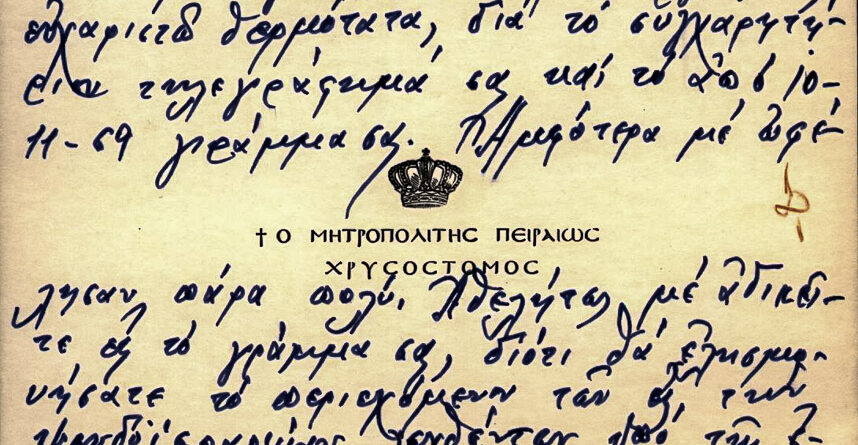 εὐχαριστῶ θερμότατα, διά τό συγχαρητή-
ριον τηλεγράφημά σας καί τό ἀπό 10-
11-69 γράμμα σας. Ἀμφότερα μέ ὠφέ-
† Ο ΜΗΤΡΟΠΟΛΙΤΗΣ ΠΕΙΡΑΙΩΣ
ΧΡΥΣΟΣΤΟΜΟΣ
λησαν πάρα πολύ. Ἀθελήτως μέ ἀδικεῖ-
τε εἰς τό γράμμα σας, διότι θά ἐλησμο-
νήσατε τό περιεχόμενον τῶν εἰς τήν